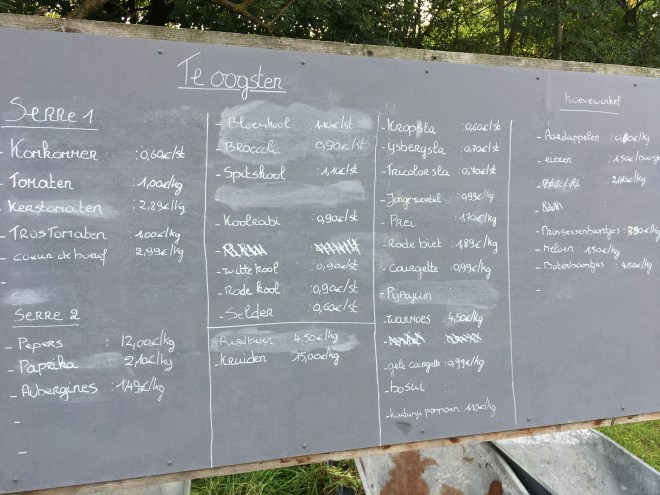 Te oogsten
Serre 1
- Komkommer : 0,60€/st
- Tomaten : 1,00€/kg
- Kerstomaten : 2,29€/kg
- Trostomaten : 1,00€/kg
- coeur de boeuf : 2,99€/kg
-
Serre 2
- Pepers : 12,00€/kg
- Paprika 2,10€/kg
- Aubergines : 1,49€/kg
-
-
- Bloemkool 1,10€/st
- Broccoli 0,90€/st
- Spitskool : 1,10€/st
- Koolrabi : 0,90€/st
- witte kool : 0,90€/st
- Rode kool : 0,90€/st
- Selder : 0,60€/st
Aardbeien 4.50€/kg
- Kruiden 15,00€/kg
- Kropsla : 0,60€/st
- Ysbergsla : 0,70€/st
- Tricolor sla : 0,70€/st
- Jonge wortel : 0,99€/kg
- Prei : 1,70€/kg
- Rode biet : 1,89€/kg
- Courgette : 0,99€/kg
- Pijpajuin
- warmoes 4,50€/kg
- gele courgette : 0,99€/kg
- boswi
pompoen : 1,10€/kg
hoevewinkel
- Aardappelen :
- eieren : 1.50€
- Prinsessenboontjes :
- Meloen : 1,50€/kg
- Boterboontjes : 4,50€/kg
-